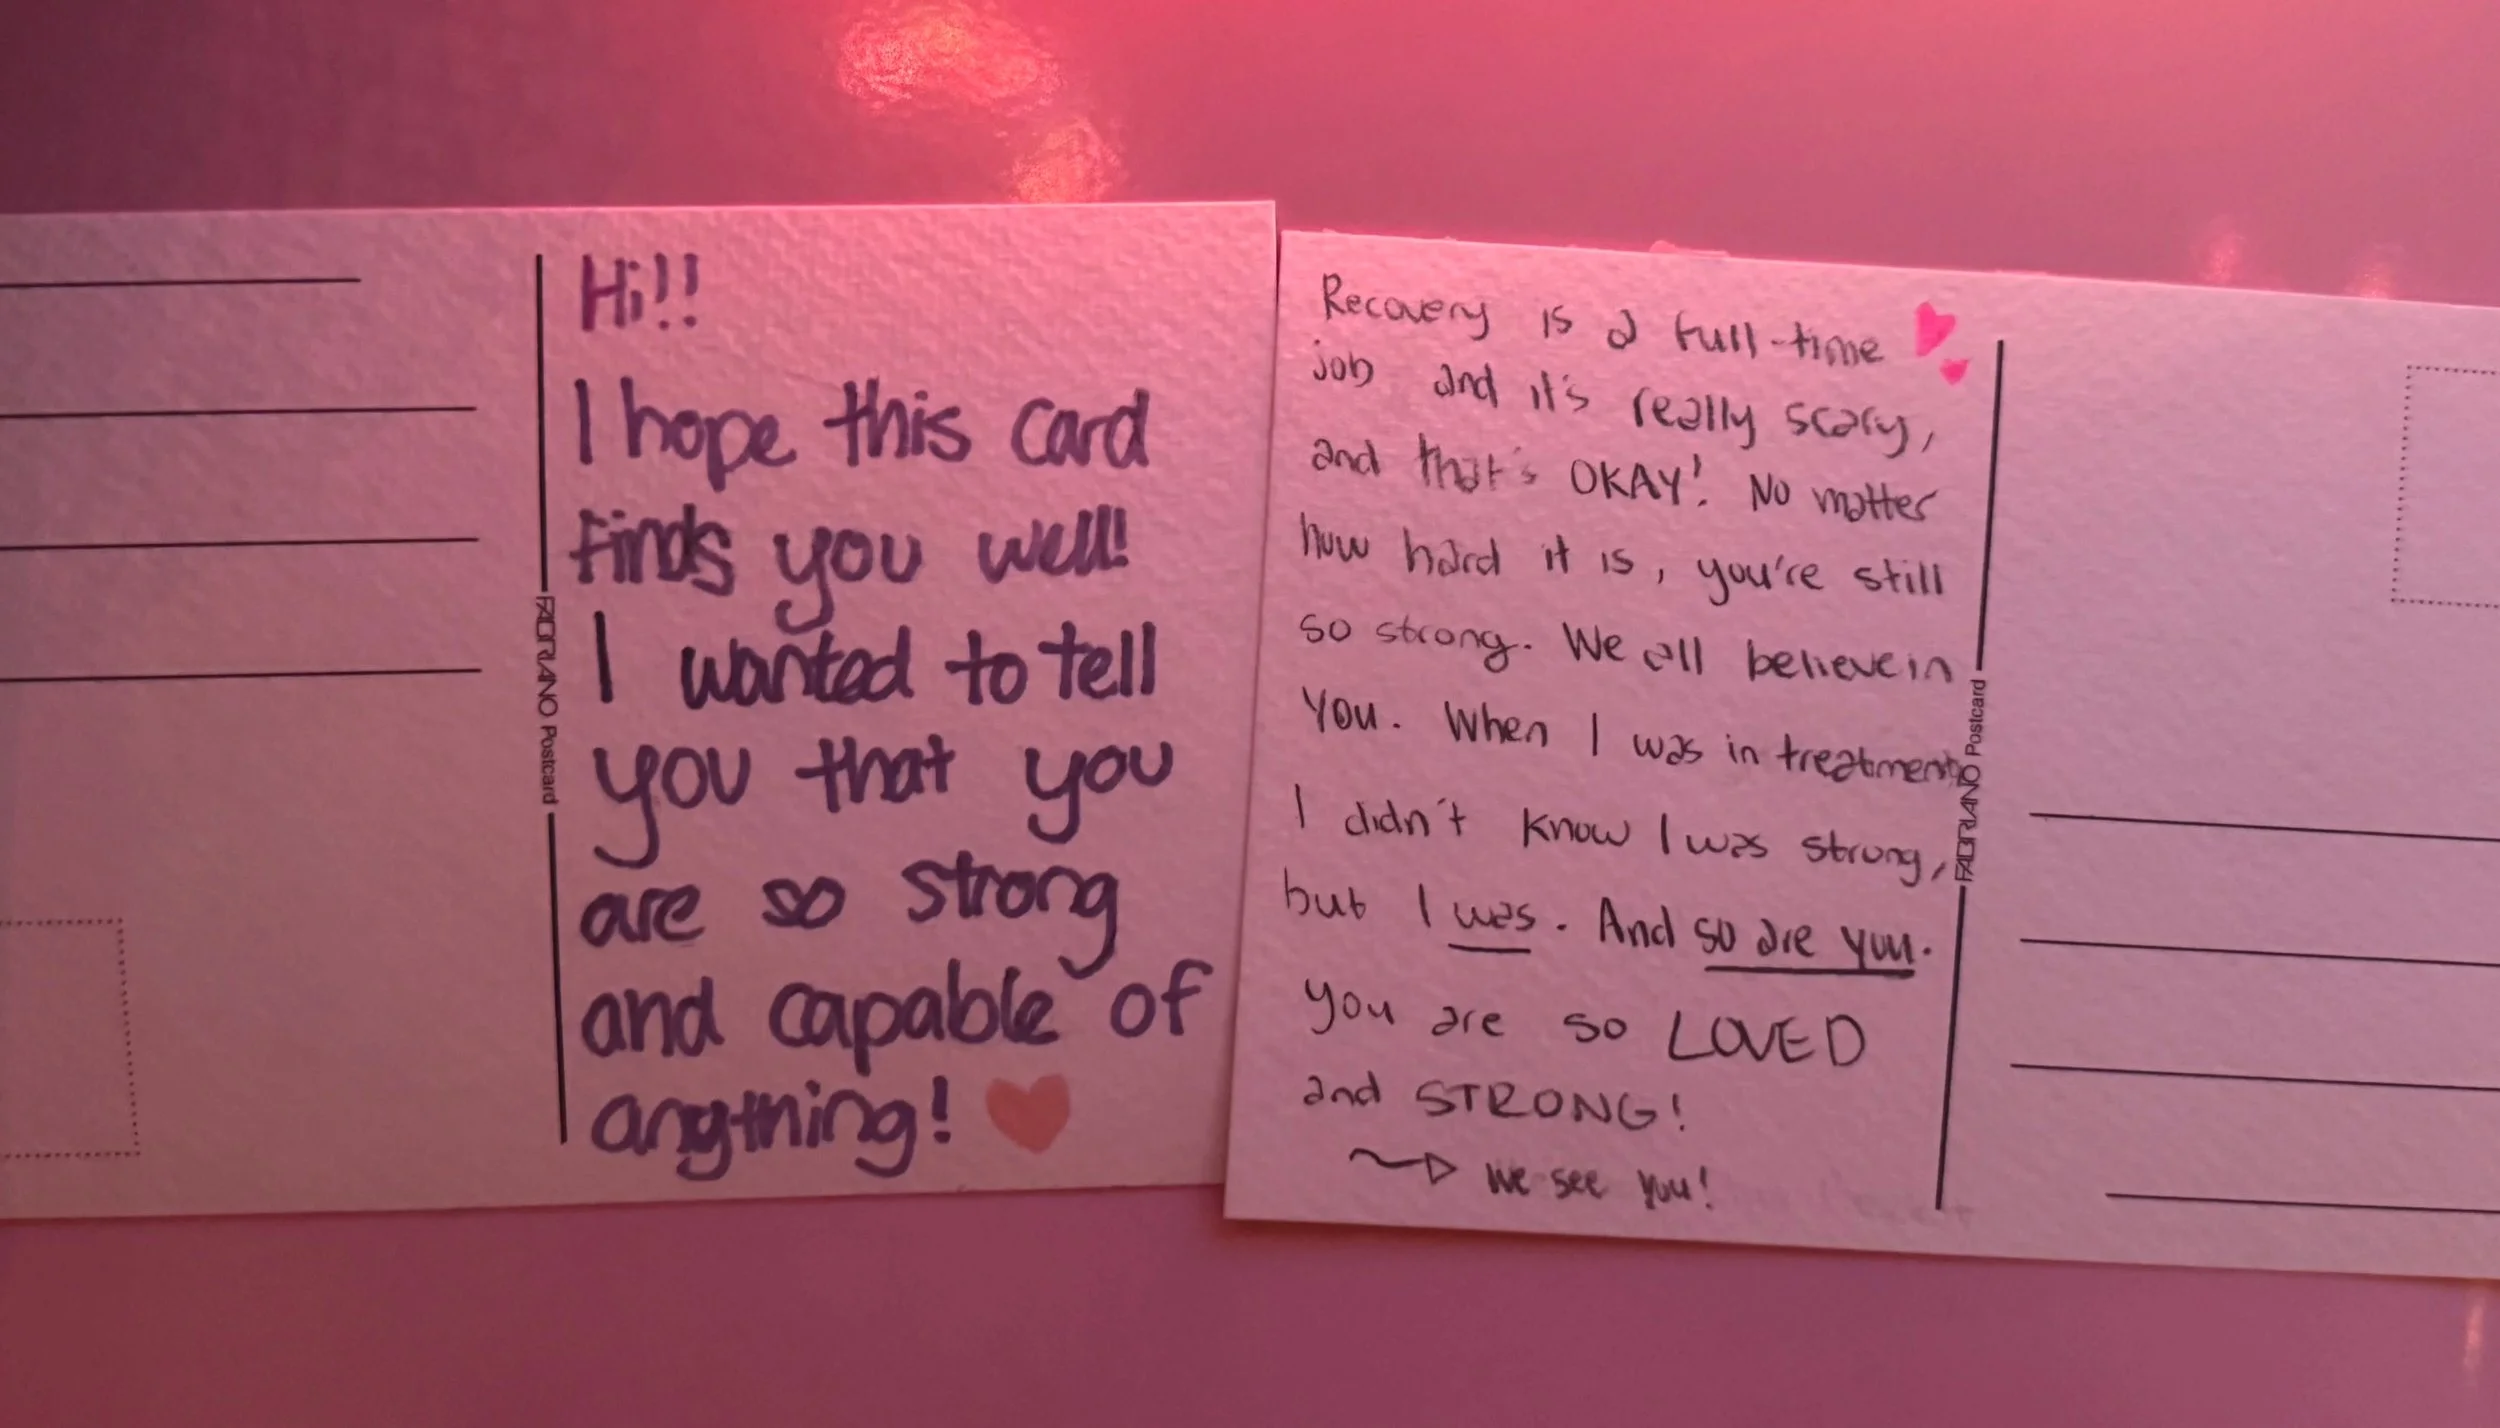 Hi!!
I hope this card
finds you well!
I wanted to tell
you that you
are so strong
and capable of
anything!
FABRIANO Postcard
Recovery is a full-time
job and it's really scary,
and that's OKAY! No matter
how hard it is, you're still
so strong. We all believe in
you. When I was in treatment,
I didn't know I was strong,
but I was. And so are you.
You are so LOVED
and STRONG!
We see you!
FABRIANO Postcard